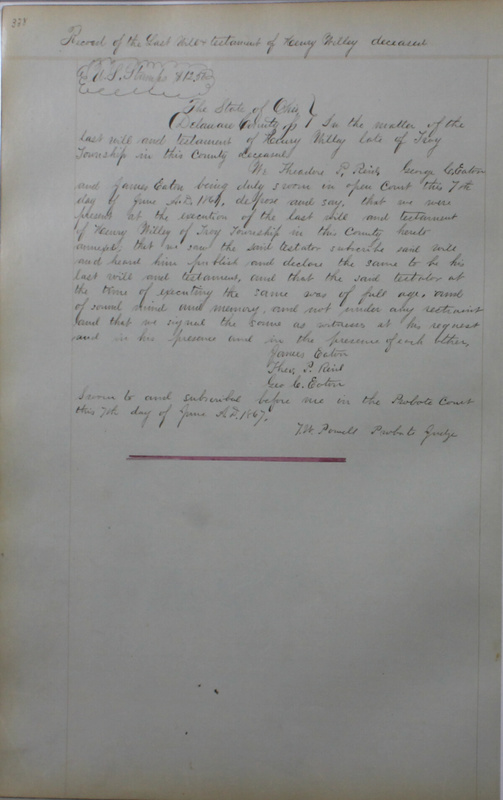 338
Record of the Last Will & testament of Henry Willey deceased
U.S. Stamps $12.50
The State of Ohio }
Delaware County ss } In the matter of the
last will and testament of Henry Willey late of Troy
Township in this County deceased
We Theodore P. Reid, George C. Eaton
and James Eaton being duly sworn in open Court this 7th
day of June A.D. 1867, depose and say, that we were
present at the execution of the last will and testament
of Henry Willey of Troy Township in this County hereto
annexed, that we saw the said testator subscribe said will
and heard him publish and declare the same to be his
last will and testament, and that the said testator at
the time of executing the same was of full age, and
of sound mind and memory, and not under any restraint
and that we signed the same as witnesses at his request
and in his presence and in the presence of each other,
James Eaton
Theo. P. Reid
Geo C. Eaton
Sworn to and subscribed before me in the Probate Court
this 7th day of June A.D. 1867.
T.W. Powell Probate Judge